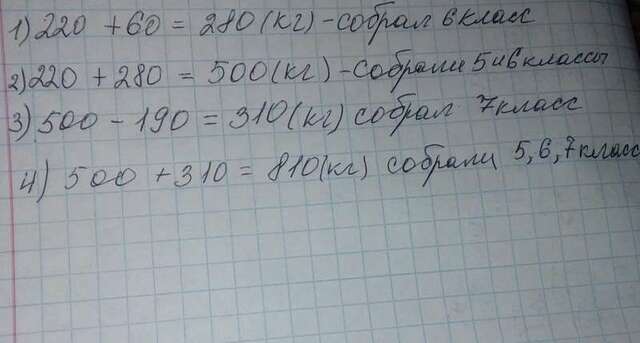 1) 220 + 60 = 280 (кг) - собрал 6 класс
2) 220 + 280 = 500 (кг) - собрали 5 и 6 классы
3) 500 - 190 = 310 (кг) собрал 7 класс
4) 500 + 310 = 810 (кг) собрали 5, 6, 7 класс